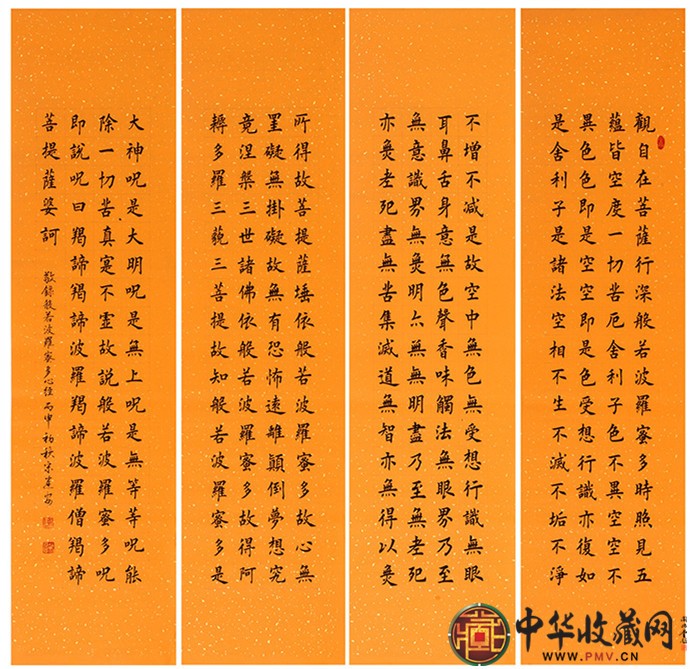 觀自在菩薩行深般若波羅蜜多時照見五
蘊皆空度一切苦厄舍利子色不異空空不
異色色即是空空即是色受想行識亦復如
是舍利子是諸法空相不生不滅不垢不淨
不增不減是故空中無色無受想行識無眼
耳鼻舌身意無色聲香味觸法無眼界乃至
無意識界無無明亦無無明盡乃至無老死
亦無老死盡無苦集滅道無智亦無得以無
所得故菩提薩埵依般若波羅蜜多故心無
罣礙無掛礙故無有恐怖遠離顛倒夢想究
竟涅槃三世諸佛依般若波羅蜜多故得阿
耨多羅三藐三菩提故知般若波羅蜜多是
大神呪是大明呪是無上呪是無等等呪能
除一切苦真實不虛故説般若波羅蜜多呪
即說呪曰羯諦羯諦波羅羯諦波羅僧羯諦
菩提薩婆訶
敬錄般若波羅蜜多心經 丙申初秋
中华收藏网
WWW.PMV.CN